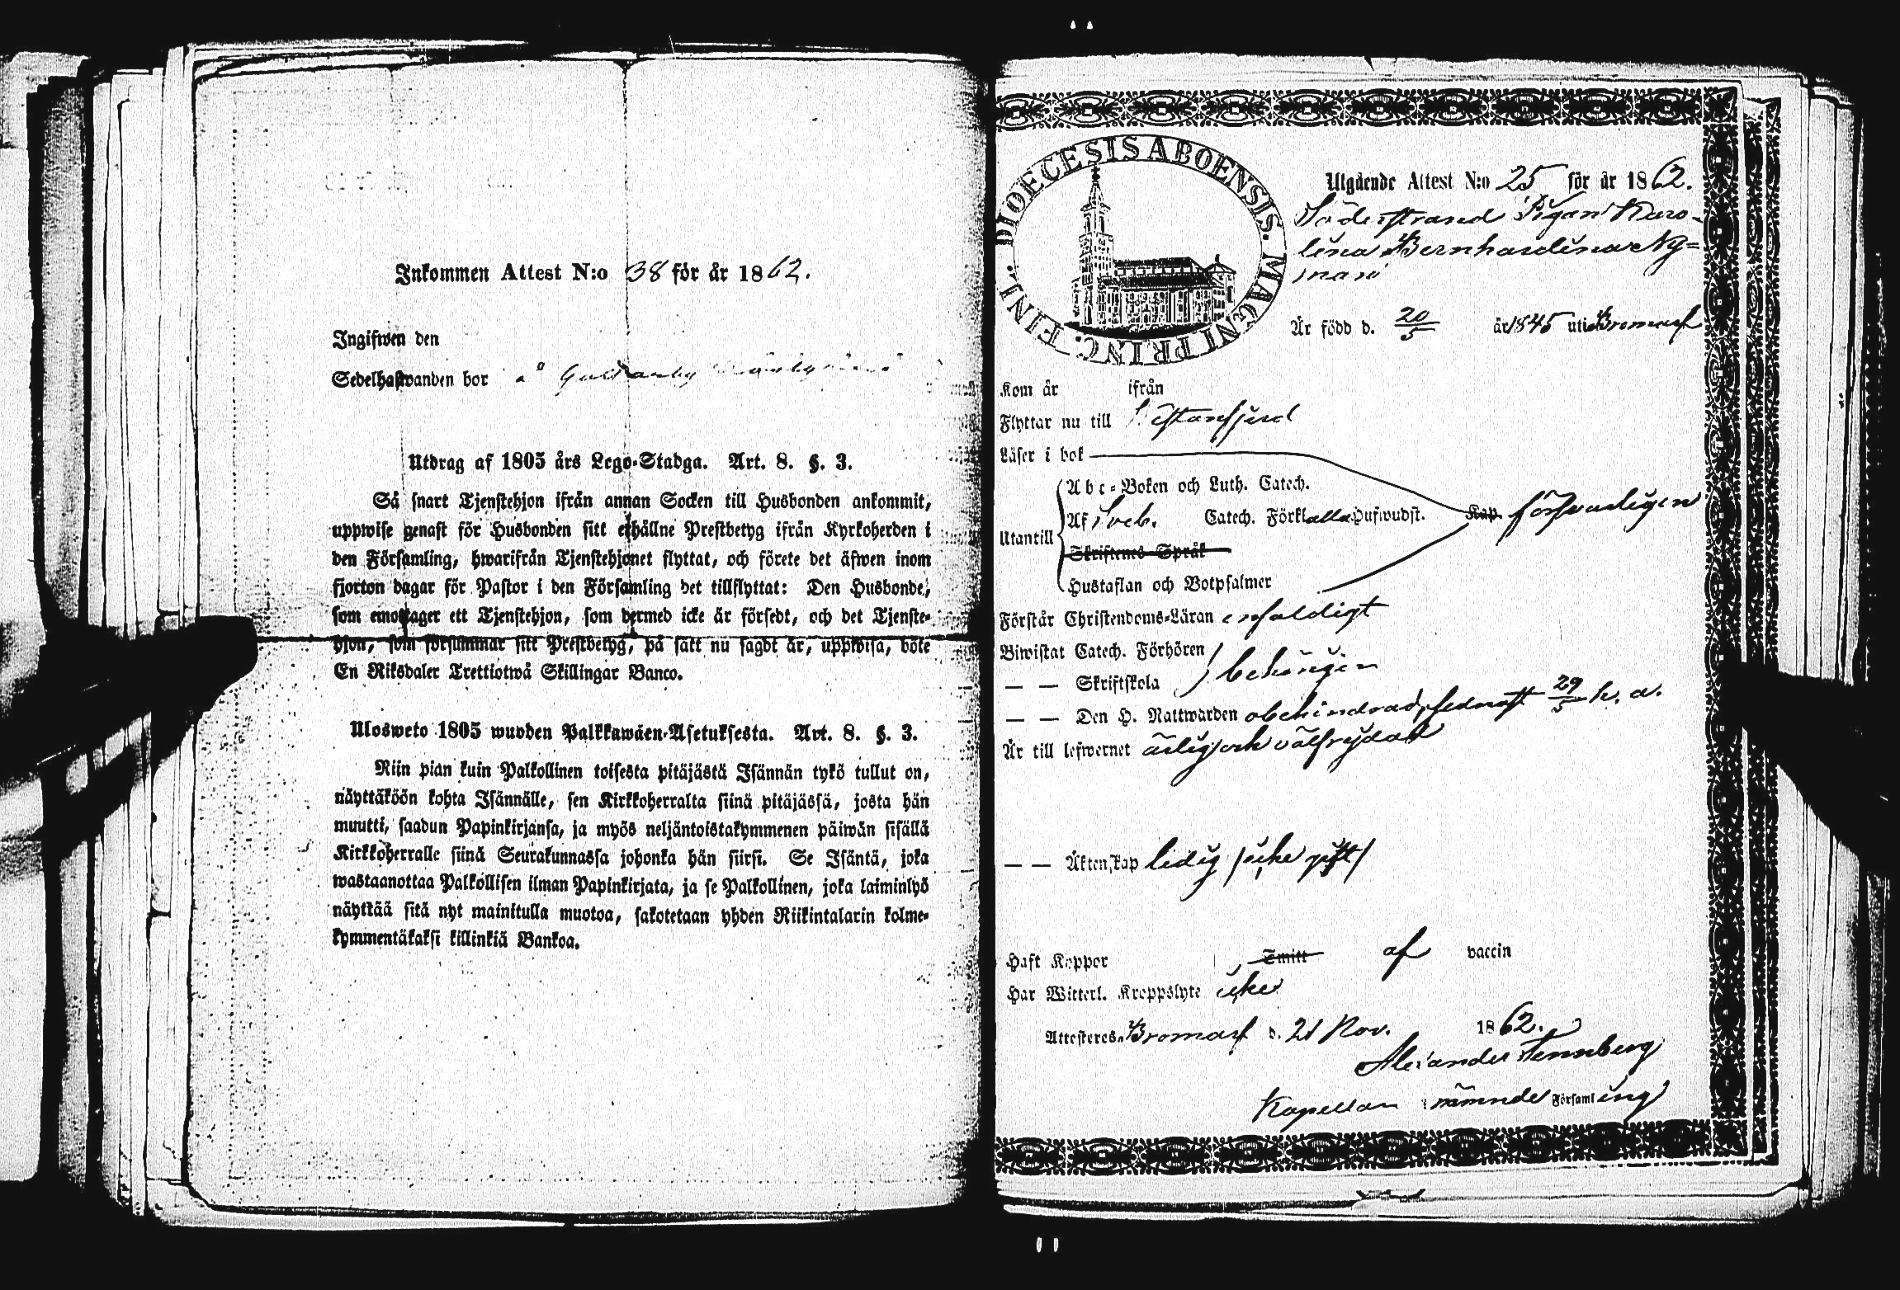 Inkommen Attest N:o 38 för år 1862.
Ingifwen den
Sedelhafwanden bor å
Utdrag af 1805 års Lego-Stadga. Art. 8. §. 3.
Så snart Tjenstehjon ifrån annan Socken till Husbonden ankommit,
uppwise genast för Husbonden sitt erhållne Prestbetyg ifrån Kyrkoherden i
den Församling, hwarifrån Tjenstehjonet flyttat, och förete det äfwen inom
fjorton dagar för Pastor i den Församling det tillflyttat: Den Husbonde,
som emottager ett Tjenstehjon, som dermed icke är försedt, och det Tjenste-
hjon, som försummar sitt Prestbetyg, på sätt nu sagdt är, uppwisa, böte
En Riksdaler Trettiotwå Skillingar Banco.
Ulosweto 1805 wuoden Palkkawäen-Asetuksesta. Art. 8. §. 3.
Niin pian kuin Palkollinen toisesta pitäjästä Isännän tykö tullut on,
näyttäköön kohta Isännälle, sen Kirkkoherralta siinä pitäjässä, josta hän
muutti, saadun Papinkirjansa, ja myös neljäntoistakymmenen päiwän sisällä
Kirkkoherralle siinä Seurakunnassa johonka hän siirsi. Se Isäntä, joka
wastaanottaa Palkollisen ilman Papinkirjata, ja se Palkollinen, joka laiminlyö
näyttää sitä nyt mainitulla muotoa, sakotetaan yhden Riikintalarin kolme-
kymmentäkaksi killinkiä Bankoa.
DIOECESIS ABOENSIS. MAGNI PRINC. FINL.
Utgående Attest N:o 25 för år 1862.
Söderstrand Pigan Karo-
lina Bernhardina Ny=
man
Är född d. 20/5 år 1845 uti Bromarf
Kom år ifrån
Flyttar nu till Westanfjerd
Läser i bok
Abc-Boken och Luth. Catech.
Utantill Af Sveb. Catech. Förkl. alla Hufwudst. Kap. försvarligen
Skriftenes Språk
Hustaflan och Botpsalmer
Förstår Christendoms-Läran enfaldigt
Biwistat Catech. Förhören
— — Skriftskola behörigen
— — Den H. Nattwarden obehindrad, sednast 29/5 h. a.
Är till lefwernet ärlig och välfrejdad
— — Äktenskap ledig /icke gift/
Haft Koppor Smitt af vaccin
Har Witterl. Kroppslyte icke
Attesteras. Bromarf d. 21 Nov. 1862.
Alexander Tennberg
Kapellan i nämnde Församling